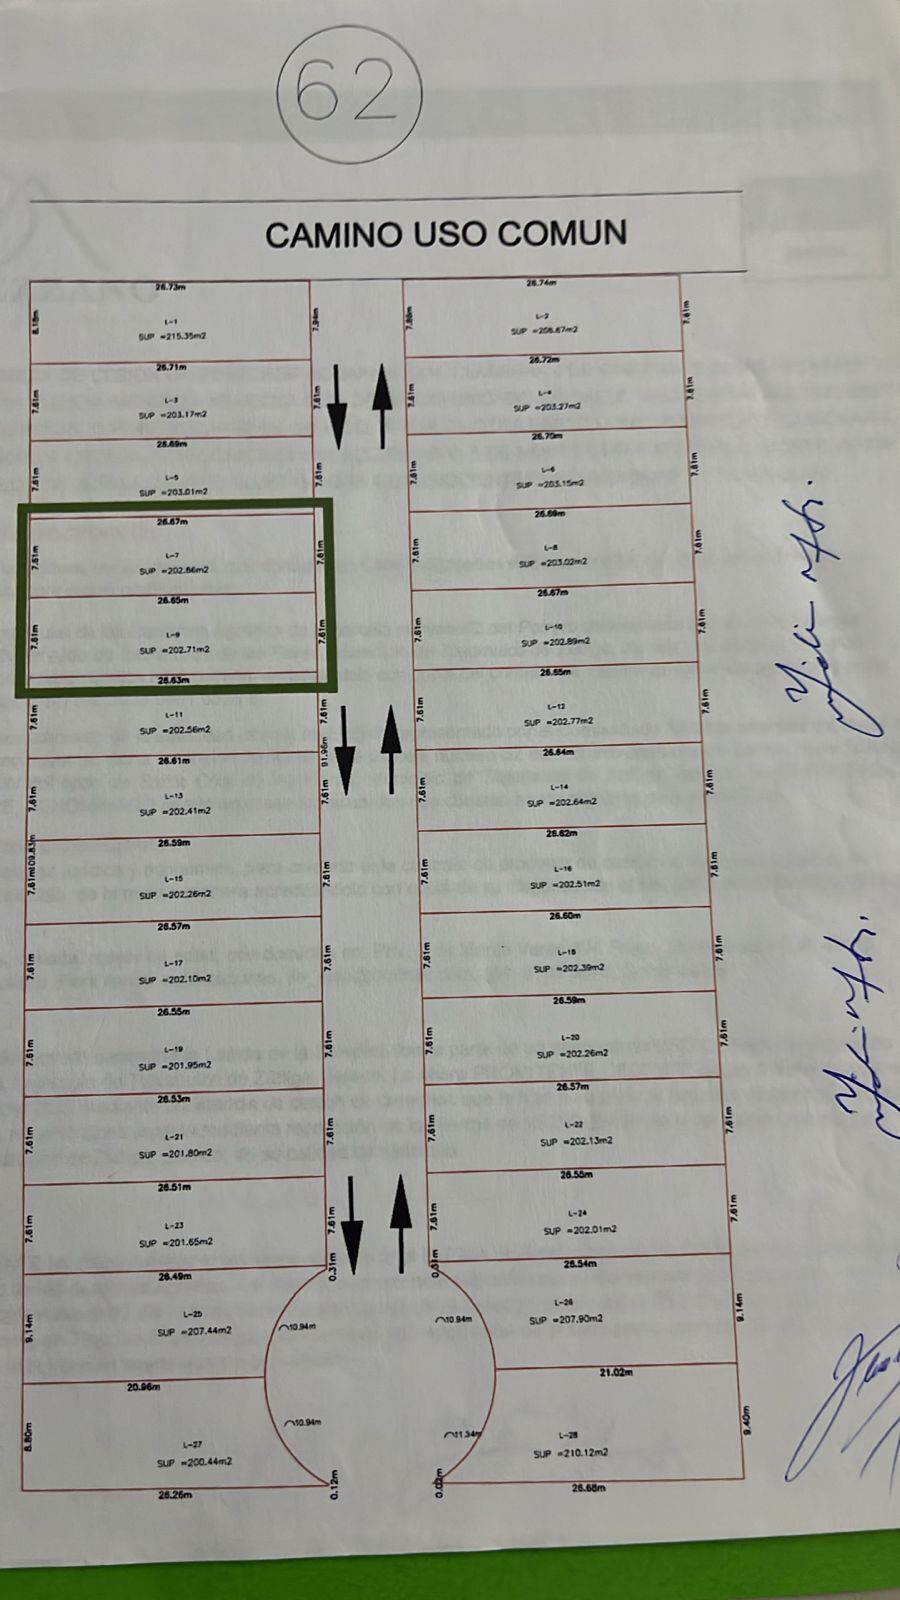 62
CAMINO USO COMUN
26.73m
8.18m
L-1
SUP =215.35m2
7.94m
26.71m
7.61m
L-3
SUP =203.17m2
7.61m
26.69m
7.61m
L-5
SUP =203.01m2
7.61m
26.67m
7.61m
L-7
SUP =202.86m2
7.61m
26.65m
7.61m
L-9
SUP =202.71m2
7.61m
26.63m
7.61m
L-11
SUP =202.56m2
7.61m
91.96m
26.61m
7.61m
L-13
SUP =202.41m2
7.61m
26.59m
109.83m
7.61m
L-15
SUP =202.26m2
7.61m
26.57m
7.61m
L-17
SUP =202.10m2
7.61m
26.55m
7.61m
L-19
SUP =201.95m2
7.61m
26.53m
7.61m
L-21
SUP =201.80m2
7.61m
26.51m
7.61m
L-23
SUP =201.65m2
7.61m
0.31m
26.49m
9.14m
L-25
SUP =207.44m2
10.94m
20.96m
8.80m
L-27
SUP =200.44m2
10.94m
0.12m
26.26m
26.74m
7.88m
L-2
SUP =206.67m2
7.61m
26.72m
7.61m
L-4
SUP =203.27m2
7.61m
26.70m
7.61m
L-6
SUP =203.15m2
7.61m
26.69m
7.61m
L-8
SUP =203.02m2
7.61m
26.67m
7.61m
L-10
SUP =202.89m2
7.61m
26.65m
7.61m
L-12
SUP =202.77m2
7.61m
26.64m
7.61m
L-14
SUP =202.64m2
7.61m
26.62m
7.61m
L-16
SUP =202.51m2
7.61m
26.60m
7.61m
L-18
SUP =202.39m2
7.61m
26.59m
7.61m
L-20
SUP =202.26m2
7.61m
26.57m
7.61m
L-22
SUP =202.13m2
7.61m
26.55m
7.61m
L-24
SUP =202.01m2
7.61m
0.31m
26.54m
10.94m
L-26
SUP =207.90m2
9.14m
21.02m
11.34m
L-28
SUP =210.12m2
9.40m
0.02m
26.68m